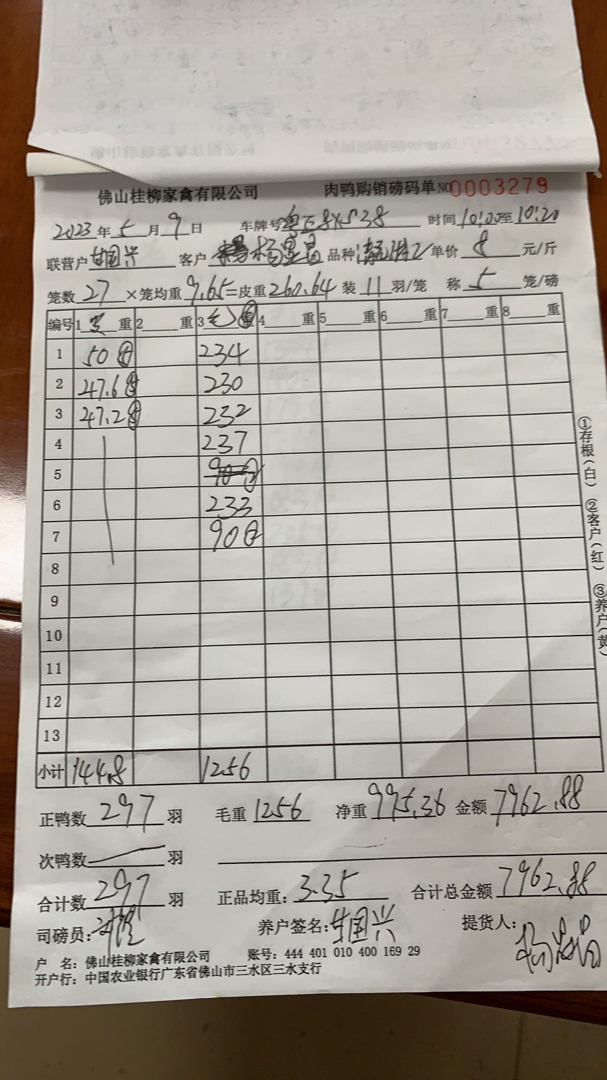 佛山桂柳家禽有限公司 肉鸭购销磅码单 NO 0003279
2023年5月9日 车牌号 时间10:00至10:20
联营户甘国兴 客户 品种 单价8元/斤
笼数27×笼均重9.65=皮重260.64 装11羽/笼 称5笼/磅
编号 1 重 2 重 3 毛 重 4 重 5 重 6 重 7 重 8 重
1 50 234
2 47.6 230
3 47.2 232
4 237
5
6 233
7 90
8
9
10
11
12
13
小计 144.8 1256
①存根(白) ②客户(红) ③养户(黄)
正鸭数297羽 毛重1256 净重995.36 金额7962.88
次鸭数 羽
合计数297羽 正品均重:3.35 合计总金额7962.88
司磅员: 养户签名:甘国兴 提货人:
户 名:佛山桂柳家禽有限公司 账号:444 401 010 400 169 29
开户行:中国农业银行广东省佛山市三水区三水支行